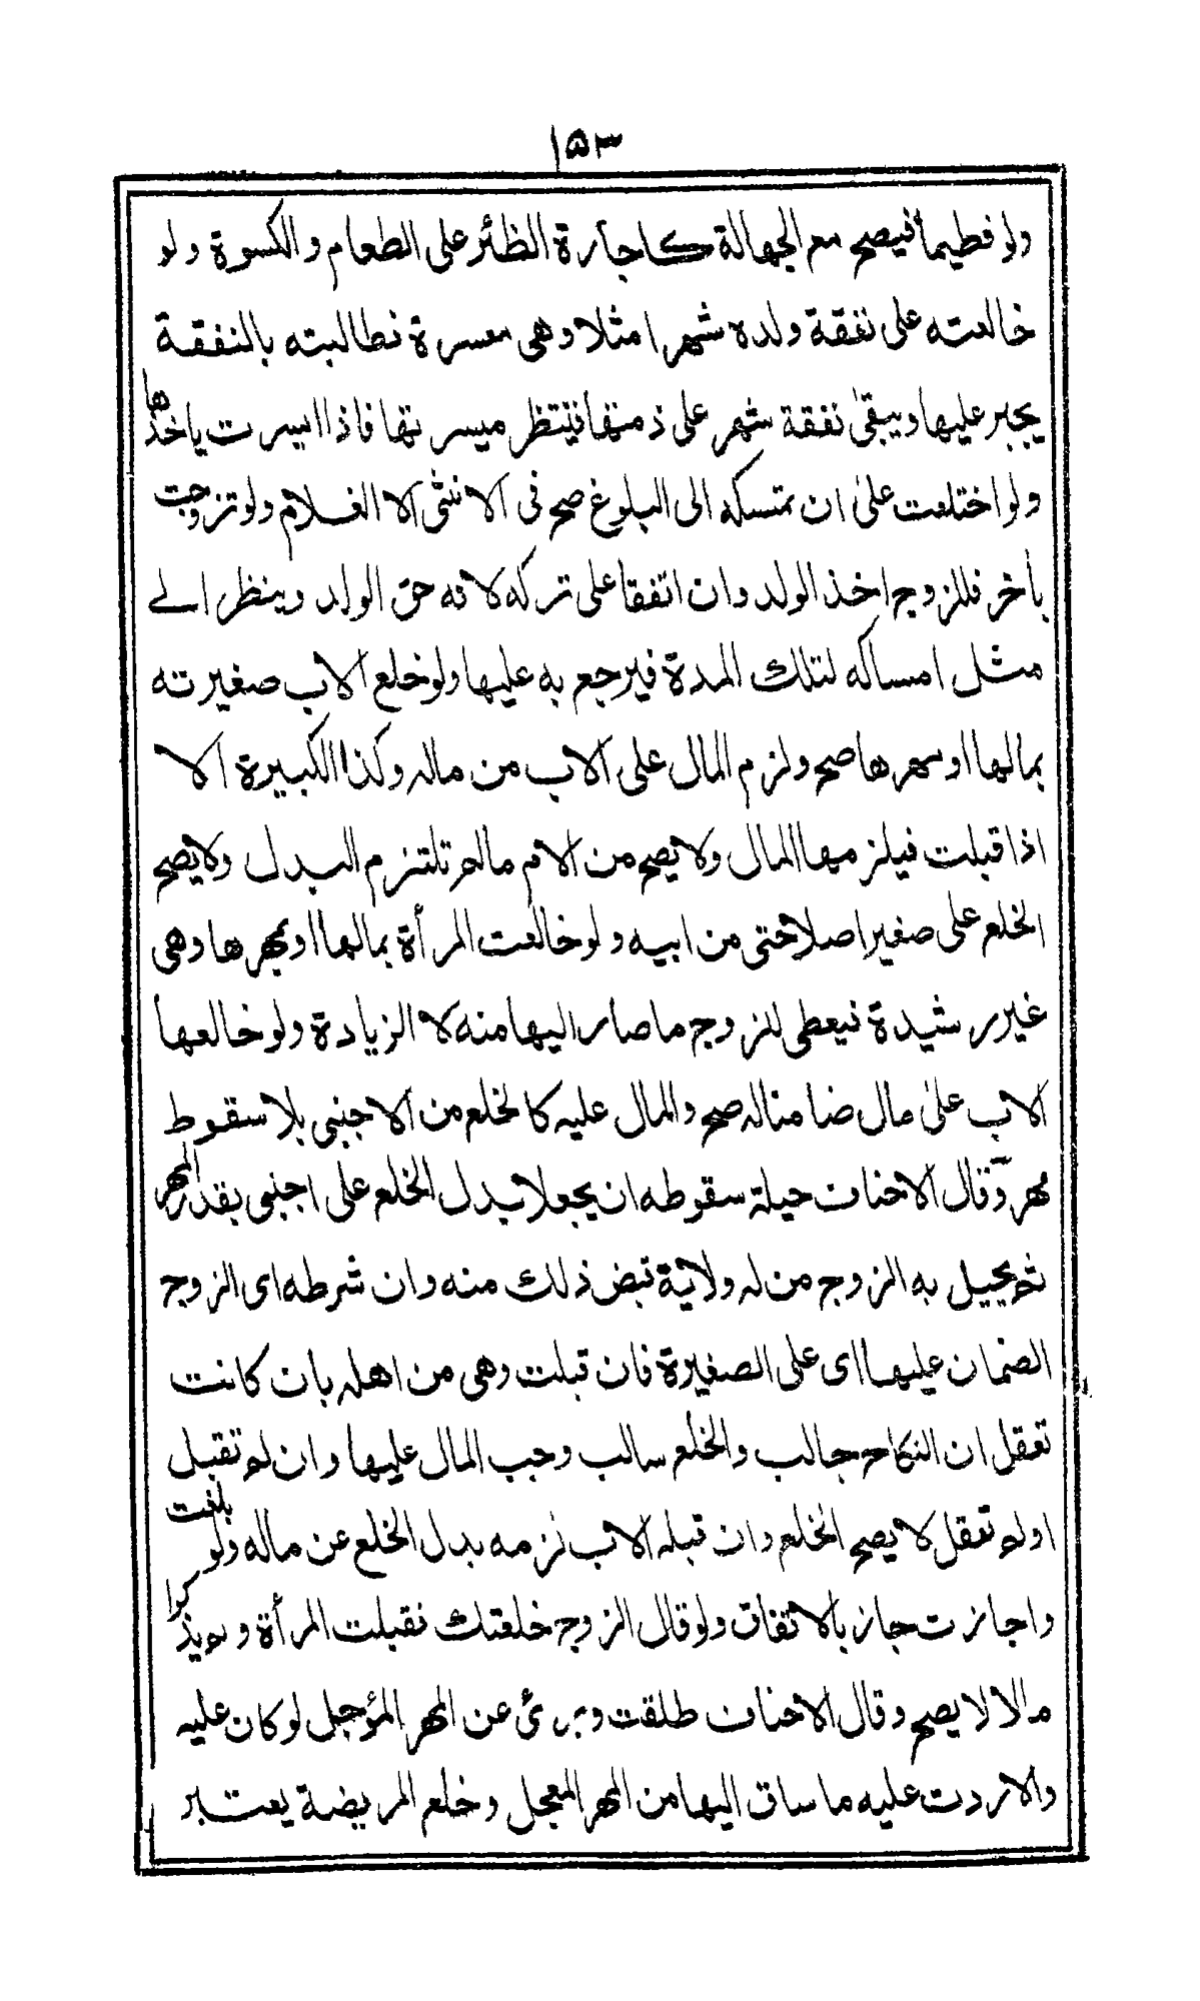 ١٥٣
ولو فطيما فيصح مع الجهالة كاجارة الظئر على الطعام والكسوة ولو
خالعته على نفقة ولده شهرا مثلا وهى معسرة فطالبته بالنفقة
يجبر عليها ويبقى نفقة شهر على ذمتها فينتظر ميسرتها فاذا ايسرت ياخذها
ولو اختلعت على ان تمسكه الى البلوغ صح فى الانثى لا الغلام ولو تزوجت
بآخر فللزوج اخذ الولد وان اتفقا على تركه لانه حق الولد وينظر الے
مثل امساكه لتلك المدة فيرجع به عليها ولو خلع الاب صغيرته
بمالها او مهرها صح ولزم المال على الاب من ماله وكذا الكبيرة الا
اذا قبلت فيلزمها المال ولا يصح من الام مالم تلتزم البدل ولا يصح
الخلع على صغير اصلا حتى من ابيه ولو خالعت المرأة بمالها او بمهرها وهى
غير رشيدة فيعطى للزوج ما صار اليها منه لا الزيادة ولو خالعها
الاب على مال ضامناله صح والمال عليه كالخلع من الاجنبى بلا سقوط
مهر وقال الاحناف حيلة سقوطه ان يجعلا بدل الخلع على اجنبى بقدر المهر
ثم يحيل به الزوج من له ولاية قبض ذلك منه وان شرطه اى الزوج
الضمان عليها اى على الصغيرة فان قبلت وهى من اهله بان كانت
تعقل ان النكاح جالب والخلع سالب وجب المال عليها وان لم تقبل
او لم تعقل لا يصح الخلع وان قبله الاب لزمه بدل الخلع عن ماله ولو بلغت
واجازت جاز بالاتفاق ولو قال الزوج خلعتك فقبلت المرأة ولم يذكرا
مالا لا يصح وقال الاحناف طلقت وبرئ عن المهر المؤجل لو كان عليه
والا ردت عليه ما ساق اليها من المهر المعجل وخلع المريضة يعتبر